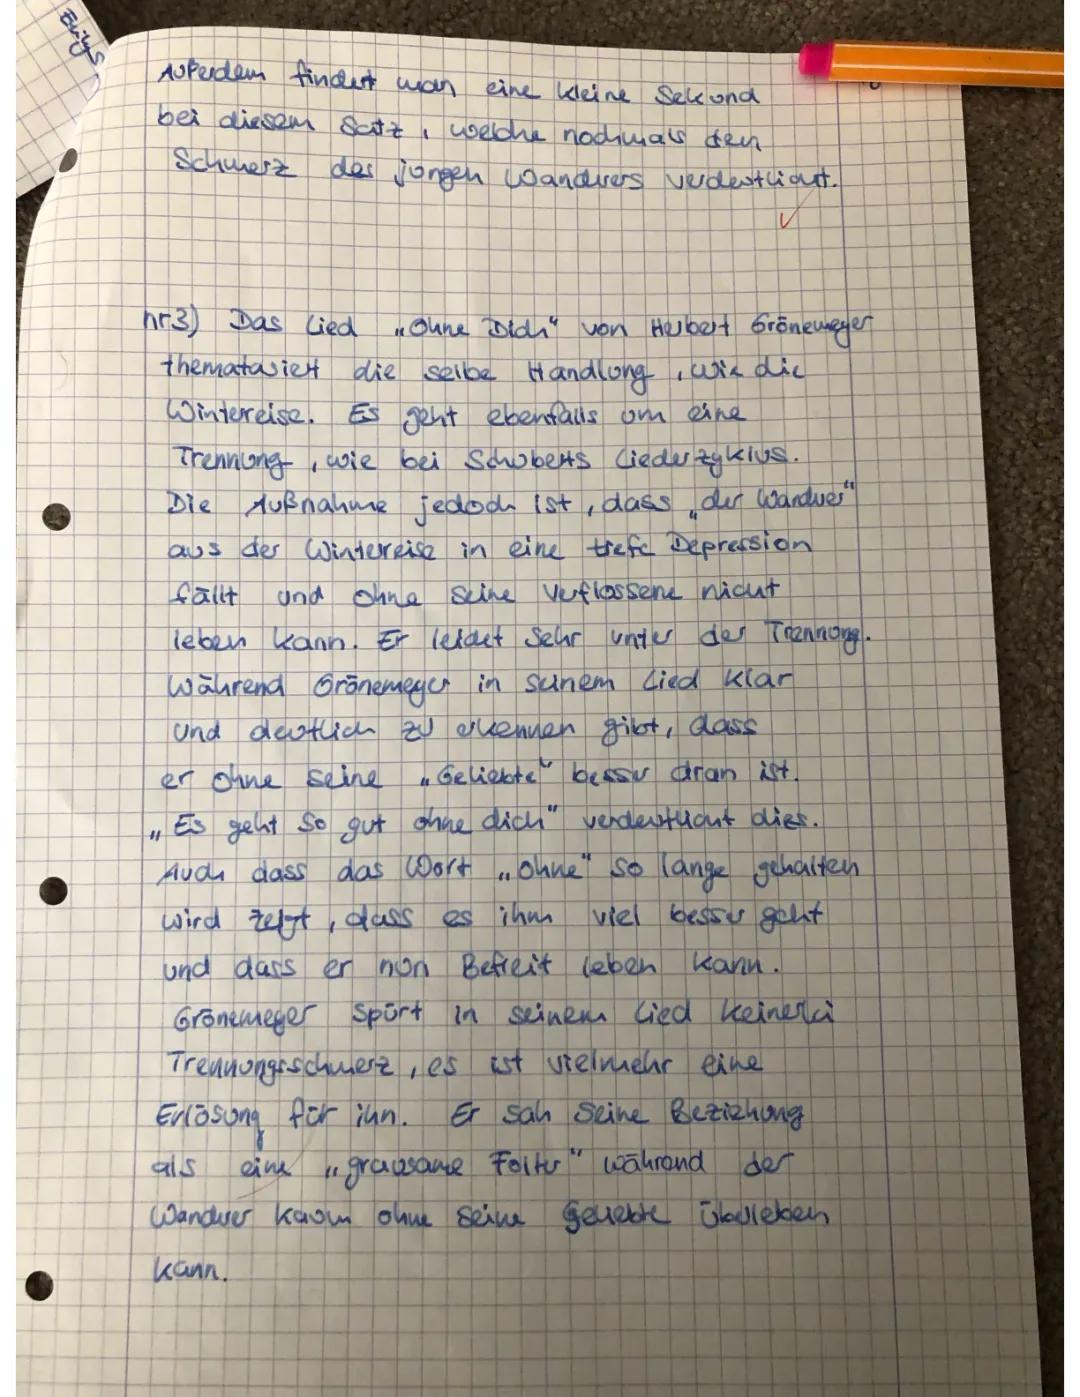 Außerdem findet man eine kleine Sekund
bei diesem Satz, welche nochmals den
Schmerz des jungen Wanderers verdeutlicht.
nr3) Das Lied „Ohne Dich" von Herbert Grönemeyer
thematasiert die selbe Handlung, wie die
Wintereise. Es geht ebenfalls um eine
Trennung, wie bei Schuberts Liederzyklus.
Die Außnahme jedoch ist, dass „der Wandrer"
aus der Winterreise in eine tiefe Depression
fällt und ohne seine Verflossene nicht
leben kann. Er leidet sehr unter der Trennung.
Während Grönemeyer in seinem Lied klar
und deutlich zu erkennen gibt, dass
er ohne seine „Geliebte" besser dran ist.
„Es geht so gut ohne dich" verdeutlicht dies.
Auch dass das Wort „ohne" so lange gehalten
wird zeigt, dass es ihm viel besser geht
und dass er nun Befreit leben kann.
Grönemeyer spürt in seinem Lied keinerlei
Trennungsschmerz, es ist vielmehr eine
Erlösung für ihn. Er sah seine Beziehung
als eine „grausame Folter" während der
Wandrer kaum ohne seine Geliebte überleben
kann.